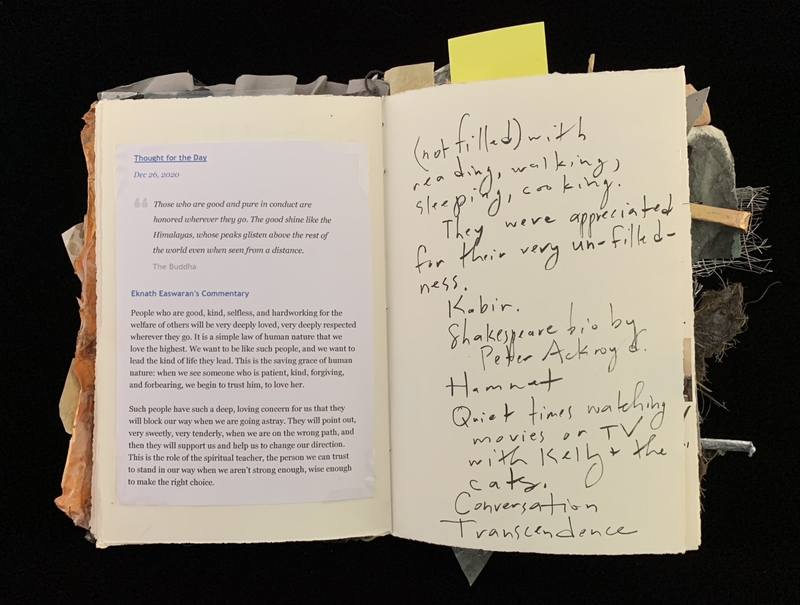 Thought for the Day
Dec 26, 2020
Those who are good and pure in conduct are
honored wherever they go. The good shine like the
Himalayas, whose peaks glisten above the rest of
the world even when seen from a distance.
The Buddha
Eknath Easwaran's Commentary
People who are good, kind, selfless, and hardworking for the
welfare of others will be very deeply loved, very deeply respected
wherever they go. It is a simple law of human nature that we
love the highest. We want to be like such people, and we want to
lead the kind of life they lead. This is the saving grace of human
nature: when we see someone who is patient, kind, forgiving,
and forbearing, we begin to trust him, to love her.
Such people have such a deep, loving concern for us that they
will block our way when we are going astray. They will point out,
very sweetly, very tenderly, when we are on the wrong path, and
then they will support us and help us to change our direction.
This is the role of the spiritual teacher, the person we can trust
to stand in our way when we aren't strong enough, wise enough
to make the right choice.
(not filled) with
reading, walking,
sleeping, cooking.
They were appreciated
for their very un-filled-
ness.
Kabir.
Shakespeare bio by
Peter Ackroyd.
Hamnet
Quiet times watching
movies or TV
with Kelly + the
cats.
Conversation
Transcendence